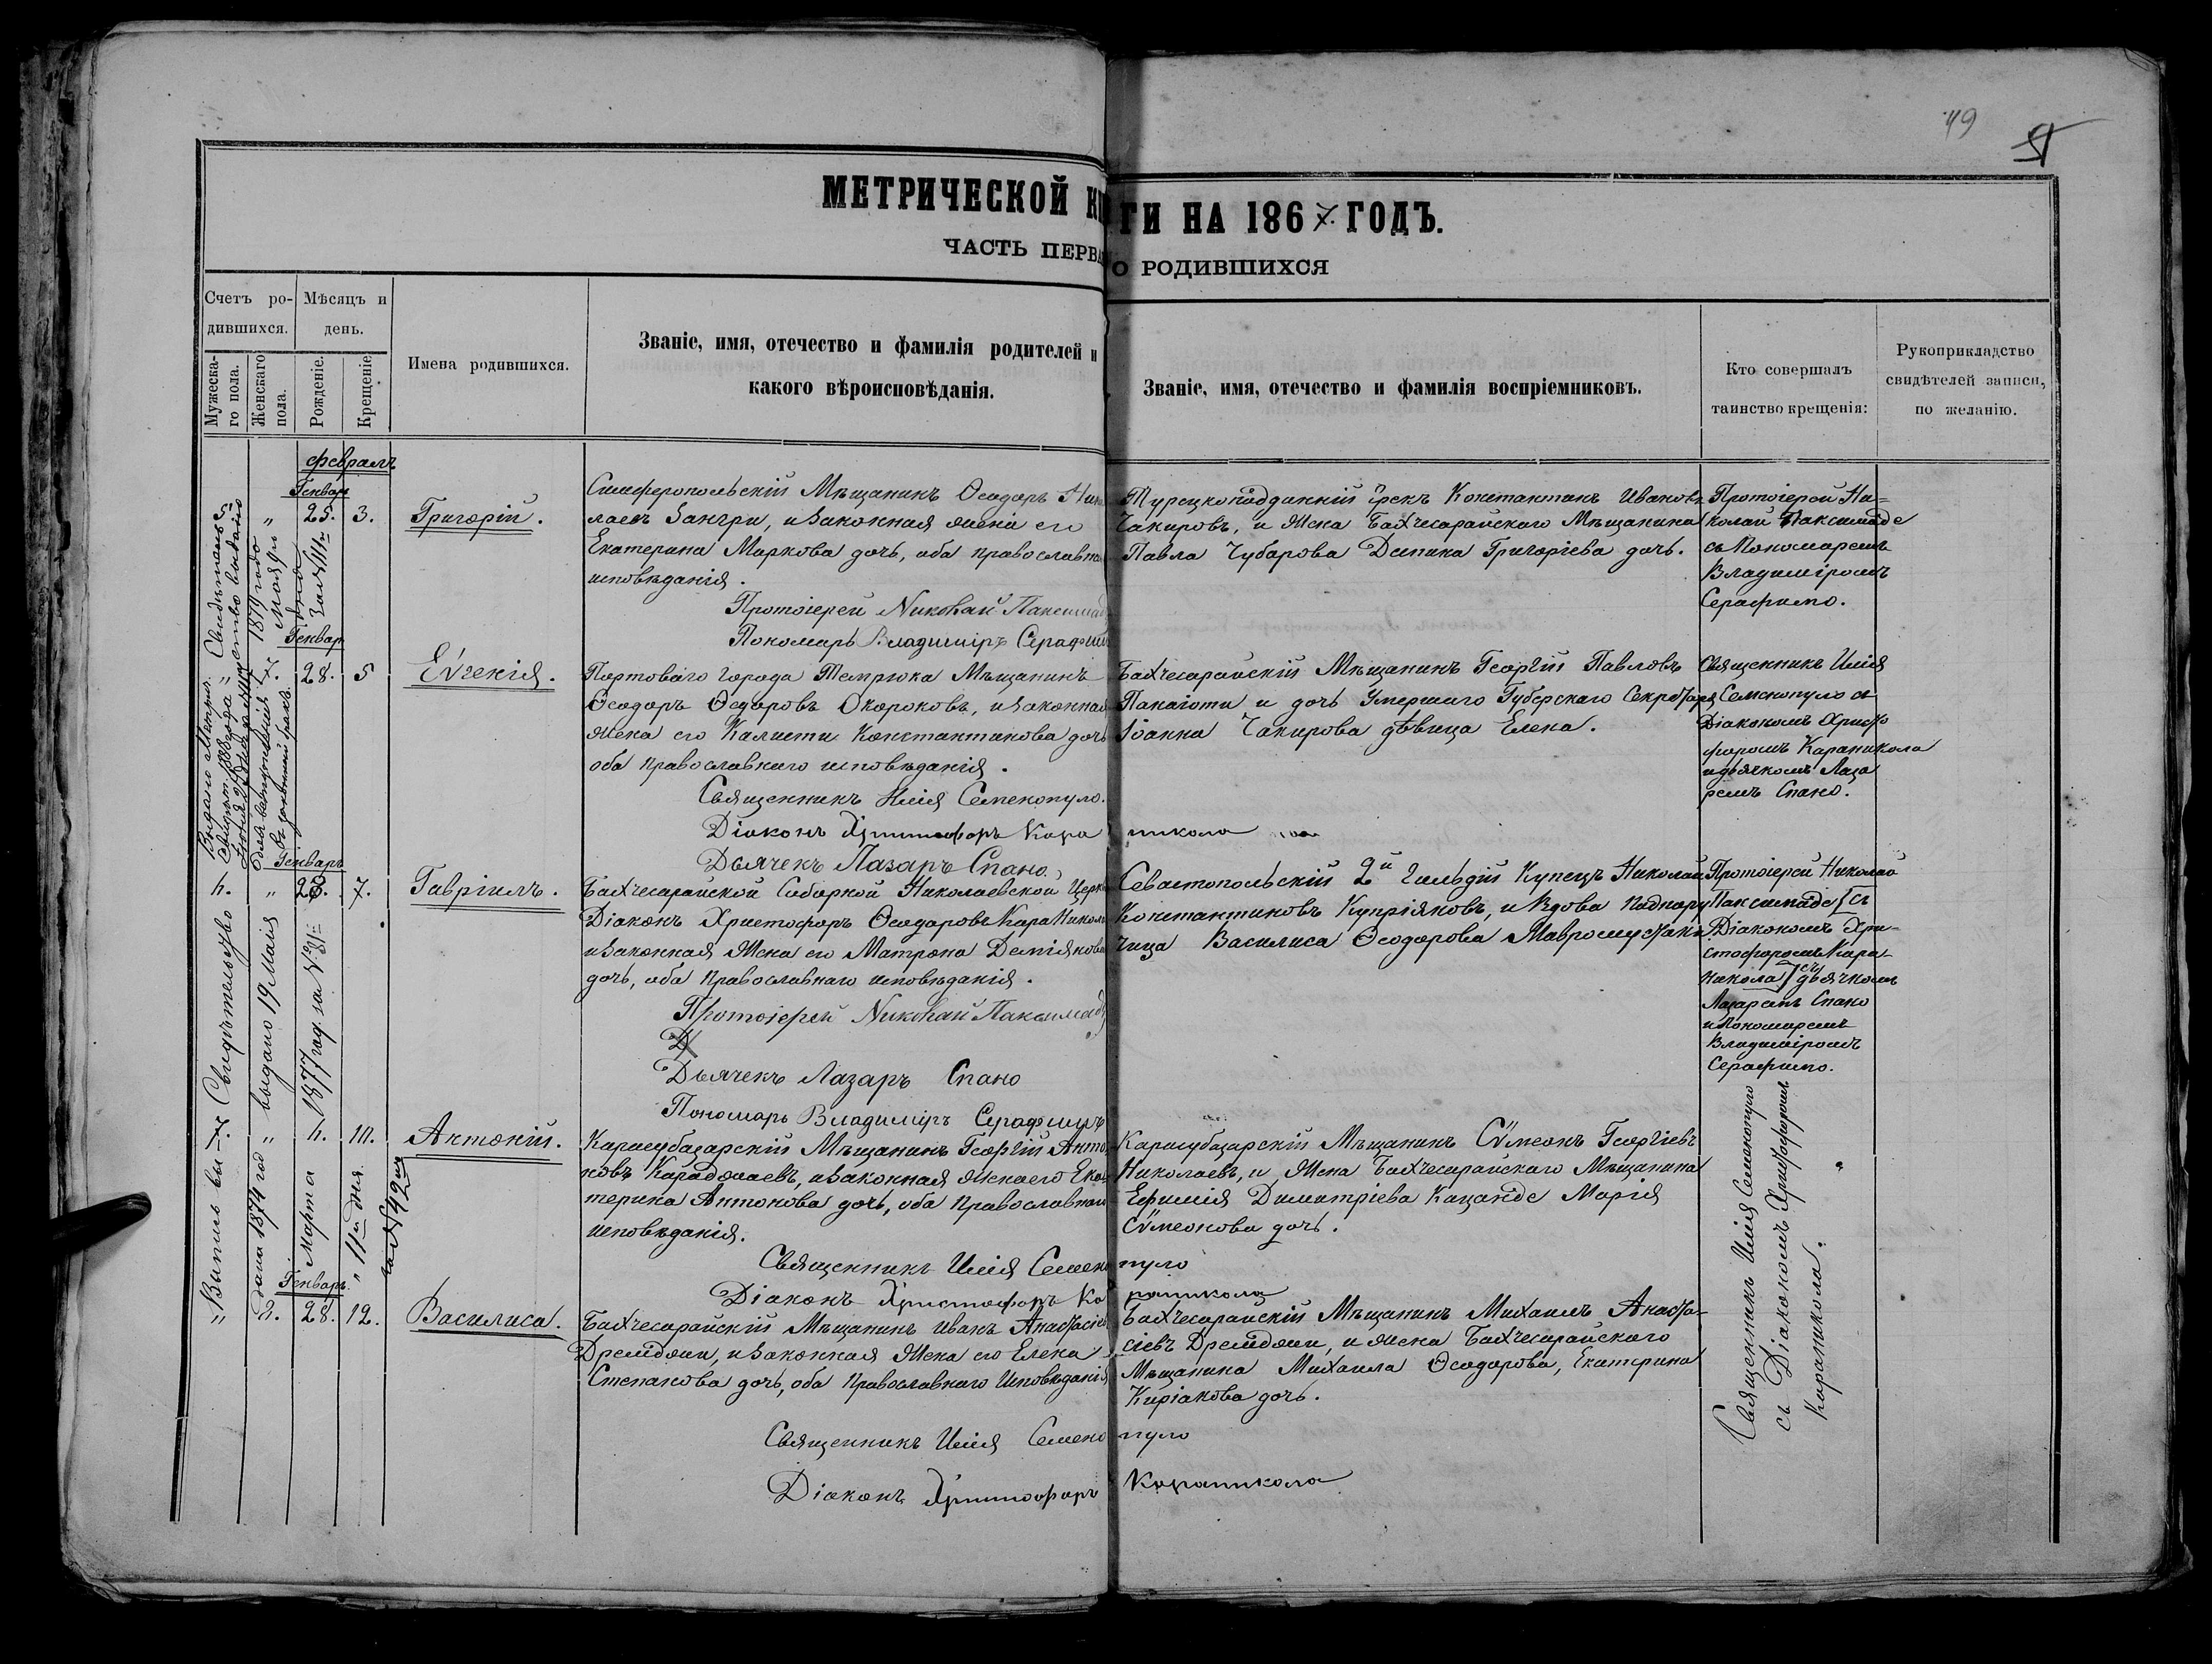 49
51
МЕТРИЧЕСКОЙ КН
ГИ НА 1867 ГОДЪ.
ЧАСТЬ ПЕРВА
О РОДИВШИХСЯ
Счетъ ро-
дившихся.
Мѣсяцъ и
день.
Мужеска-
го пола.
Женскаго
пола.
Рожденіе.
Крещеніе
Имена родившихся.
Званіе, имя, отечество и фамилія родителей и
какого вѣроисповѣданія.
Званіе, имя, отечество и фамилія воспріемниковъ.
Кто совершалъ
таинство крещенія:
Рукоприкладство
свидѣтелей записи,
по желанію.
Февраль
Генваря
5. " 25. 3.
Григорій.
Симферопольскій Мѣщанинъ Ѳеодоръ Нико
лаевъ Зангри, и законная жена его
Екатерина Маркова дочь, оба православна
исповѣданія.
Протоіерей Николай Паксимад
Пономарь Владиміръ Серафим
Турецкоподданній грекъ Константинъ Ивановъ
Чакировъ, и Жена Бахчесарайскаго Мѣщанина
Павла Чубарова Деспина Григоріева дочь.
Протоіерей Ни=
колай Паксимаде
съ Пономаремъ
Владиміромъ
Серафимо.
Генваря
28. 5
Еѵгенія.
Портоваго города Темрюка Мѣщанинъ
Ѳеодоръ Ѳедоровъ Окороковъ, и законная
жена его Калисти Константинова дочь
оба православнаго исповѣданія.
Священникъ Илія Семенопуло.
Діаконъ Христофоръ Кара
никола
Дьячекъ Лазаръ Спано.
Бахчесарайскій Мѣщанинъ Георгій Павловъ
Панаіоти и дочь Умершаго Губерскаго Секретаря
Іоанна Чакирова дѣвица Елена.
Священникъ Илія
Семенопуло съ
Діакономъ Христо
форомъ Караникола
и дьячкомъ Лаза
ремъ Спано.
Генваря
" 7.
Гавріилъ.
Бахчесарайской Соборной Николаевской Церкв
Діаконъ Христофоръ Ѳеодоровъ КараНикола
и законная Жена его Матрона Деміянова
дочь, оба православнаго исповѣданія.
Протоіерей Николай Паксимад
Д
Дьячекъ Лазаръ Спано
Пономарь Владиміръ Серафимъ
Севастопольскій 2й Гильдіи Купецъ Николай
Константиновъ Купріяновъ, и Вдова Подпору
чица Василиса Ѳеодорова Мавромустаки
Протоіерей Николай
Паксимаде [съ
Діакономъ Хри-
стофоромъ Кара-
никола] съ дьячкомъ
Лазаремъ Спано
и Пономаремъ
Владиміромъ
Серафимо.
" 10.
Антоній.
Карасубазарскій Мѣщанинъ Георгій Анто
новъ Караджаевъ, и законная жена его Ека
терина Антонова дочь, оба Православнаго
исповѣданія.
Священникъ Илія Семено
пуло
Діаконъ Христофоръ Ка
раникола
Карасубазарскій Мѣщанинъ Сѵмеонъ Георгіевъ
Николаевъ, и Жена Бахчесарайскаго Мѣщанина
Ефимія Димитріева Кацанде Марія
Сѵмеонова дочь.
Генваря
" 28. 12.
Василиса.
Бахчесарайскій Мѣщанинъ Иванъ Анастасіев
Дремджи, и законная Жена его Елена
Степанова дочь, оба Православнаго Исповѣданія
Священникъ Илія Семено
пуло
Діаконъ Христофоръ
Караникола
Бахчесарайскій Мѣщанинъ Михаилъ Анаста-
сіевъ Дремджи, и жена Бахчесарайскаго
Мѣщанина Михаила Ѳеодорова, Екатерина
Киріакова дочь.
Священникъ Илія Семенопуло
съ Діакономъ Христофоромъ
Караникола.
Свидѣтельство выдано
1879 года
Ноября
Выдана Метрич.
вступившій
въ законный бракъ.
Свидѣтельство
выдано 19 Маія
1877 год. за № 31
Выпись
дана 1874 год
Марта
11го дня
за № 42м